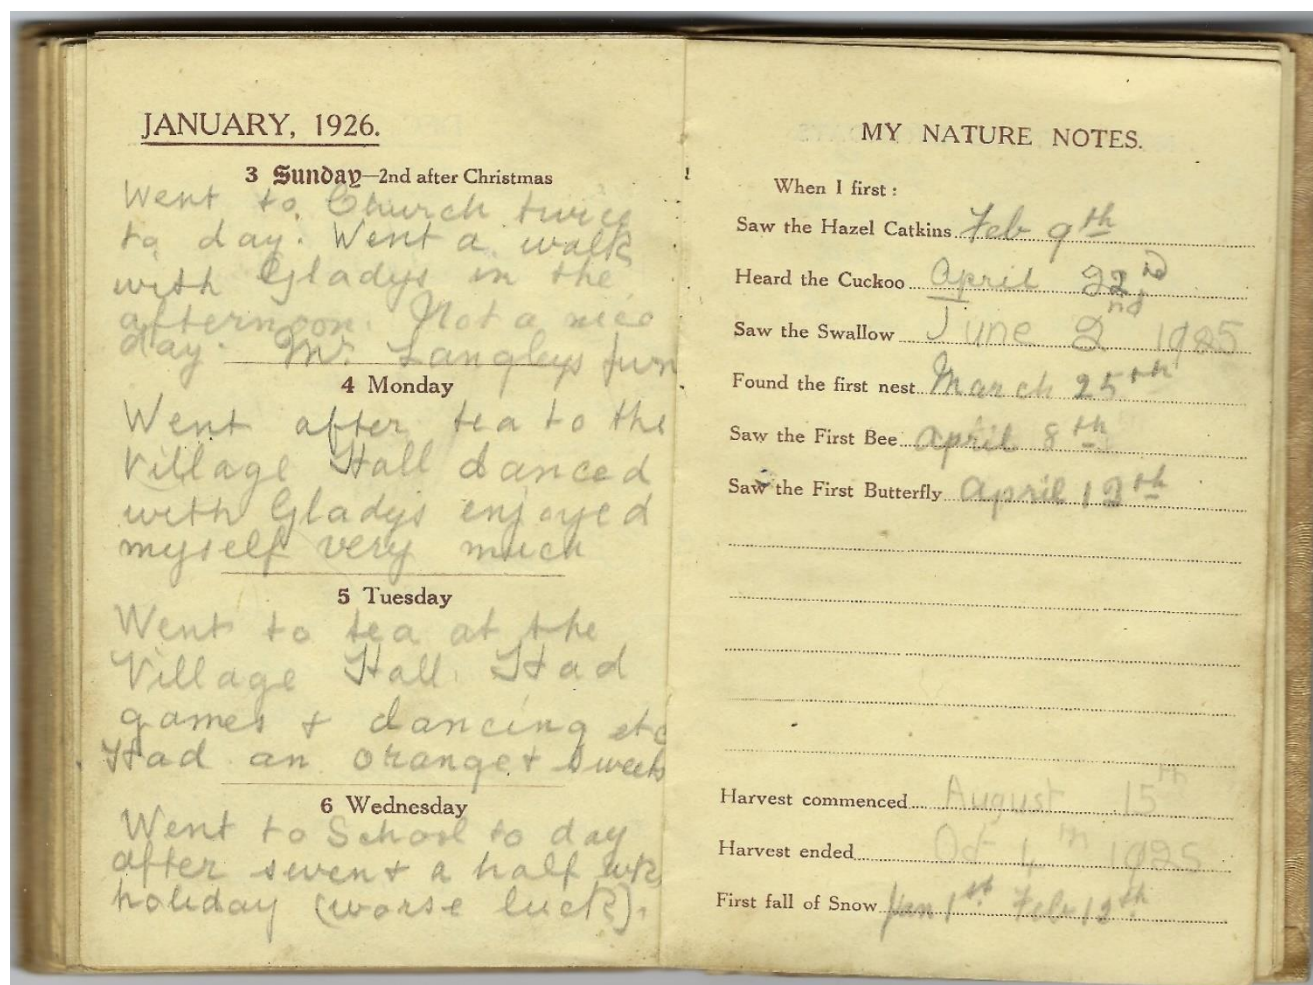 JANUARY, 1926.
3 Sunday—2nd after Christmas
Went to Church twice
to day. Went a walk
with Gladys in the
afternoon. Not a nice
day. Mr. Langleys fun
4 Monday
Went after tea to the
Village Hall danced
with Gladys enjoyed
myself very much
5 Tuesday
Went to tea at the
Village Hall. Had
games & dancing etc
Had an orange & sweets
6 Wednesday
Went to School to day
after seven & a half wk
holiday (worse luck).
MY NATURE NOTES.
When I first :
Saw the Hazel Catkins Feb 9th
Heard the Cuckoo April 22nd
Saw the Swallow June 2nd 1925
Found the first nest March 25th
Saw the First Bee April 8th
Saw the First Butterfly April 12th
Harvest commenced August 15th
Harvest ended Oct 4th 1925
First fall of Snow Jan 1st Feb 12th